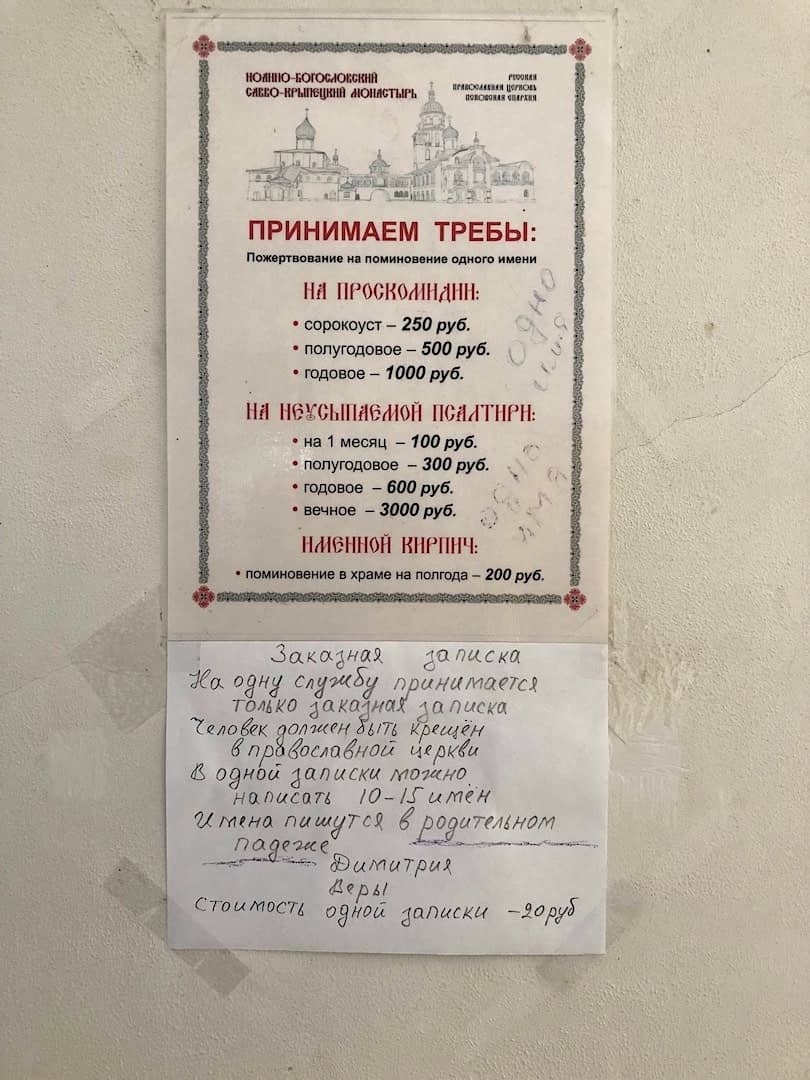 ИОАННО-БОГОСЛОВСКИЙ
САВВО-КРЫПЕЦКИЙ МОНАСТЫРЬ
РУССКАЯ
ПРАВОСЛАВНАЯ ЦЕРКОВЬ
ПСКОВСКАЯ ЕПАРХИЯ
ПРИНИМАЕМ ТРЕБЫ:
Пожертвование на поминовение одного имени
НА ПРОСКОМИДИИ:
• сорокоуст – 250 руб.
• полугодовое – 500 руб.
• годовое – 1000 руб.
одно
имя
НА НЕУСЫПАЕМОЙ ПСАЛТИРИ:
• на 1 месяц – 100 руб.
• полугодовое – 300 руб.
• годовое – 600 руб.
• вечное – 3000 руб.
одно
имя
ИМЕННОЙ КИРПИЧ:
• поминовение в храме на полгода – 200 руб.
Заказная записка
На одну службу принимается
только заказная записка
Человек должен быть крещён
в православной церкви
В одной записки можно
написать 10-15 имён
Имена пишутся в родительном
падеже
Димитрия
Веры
Стоимость одной записки -20 руб